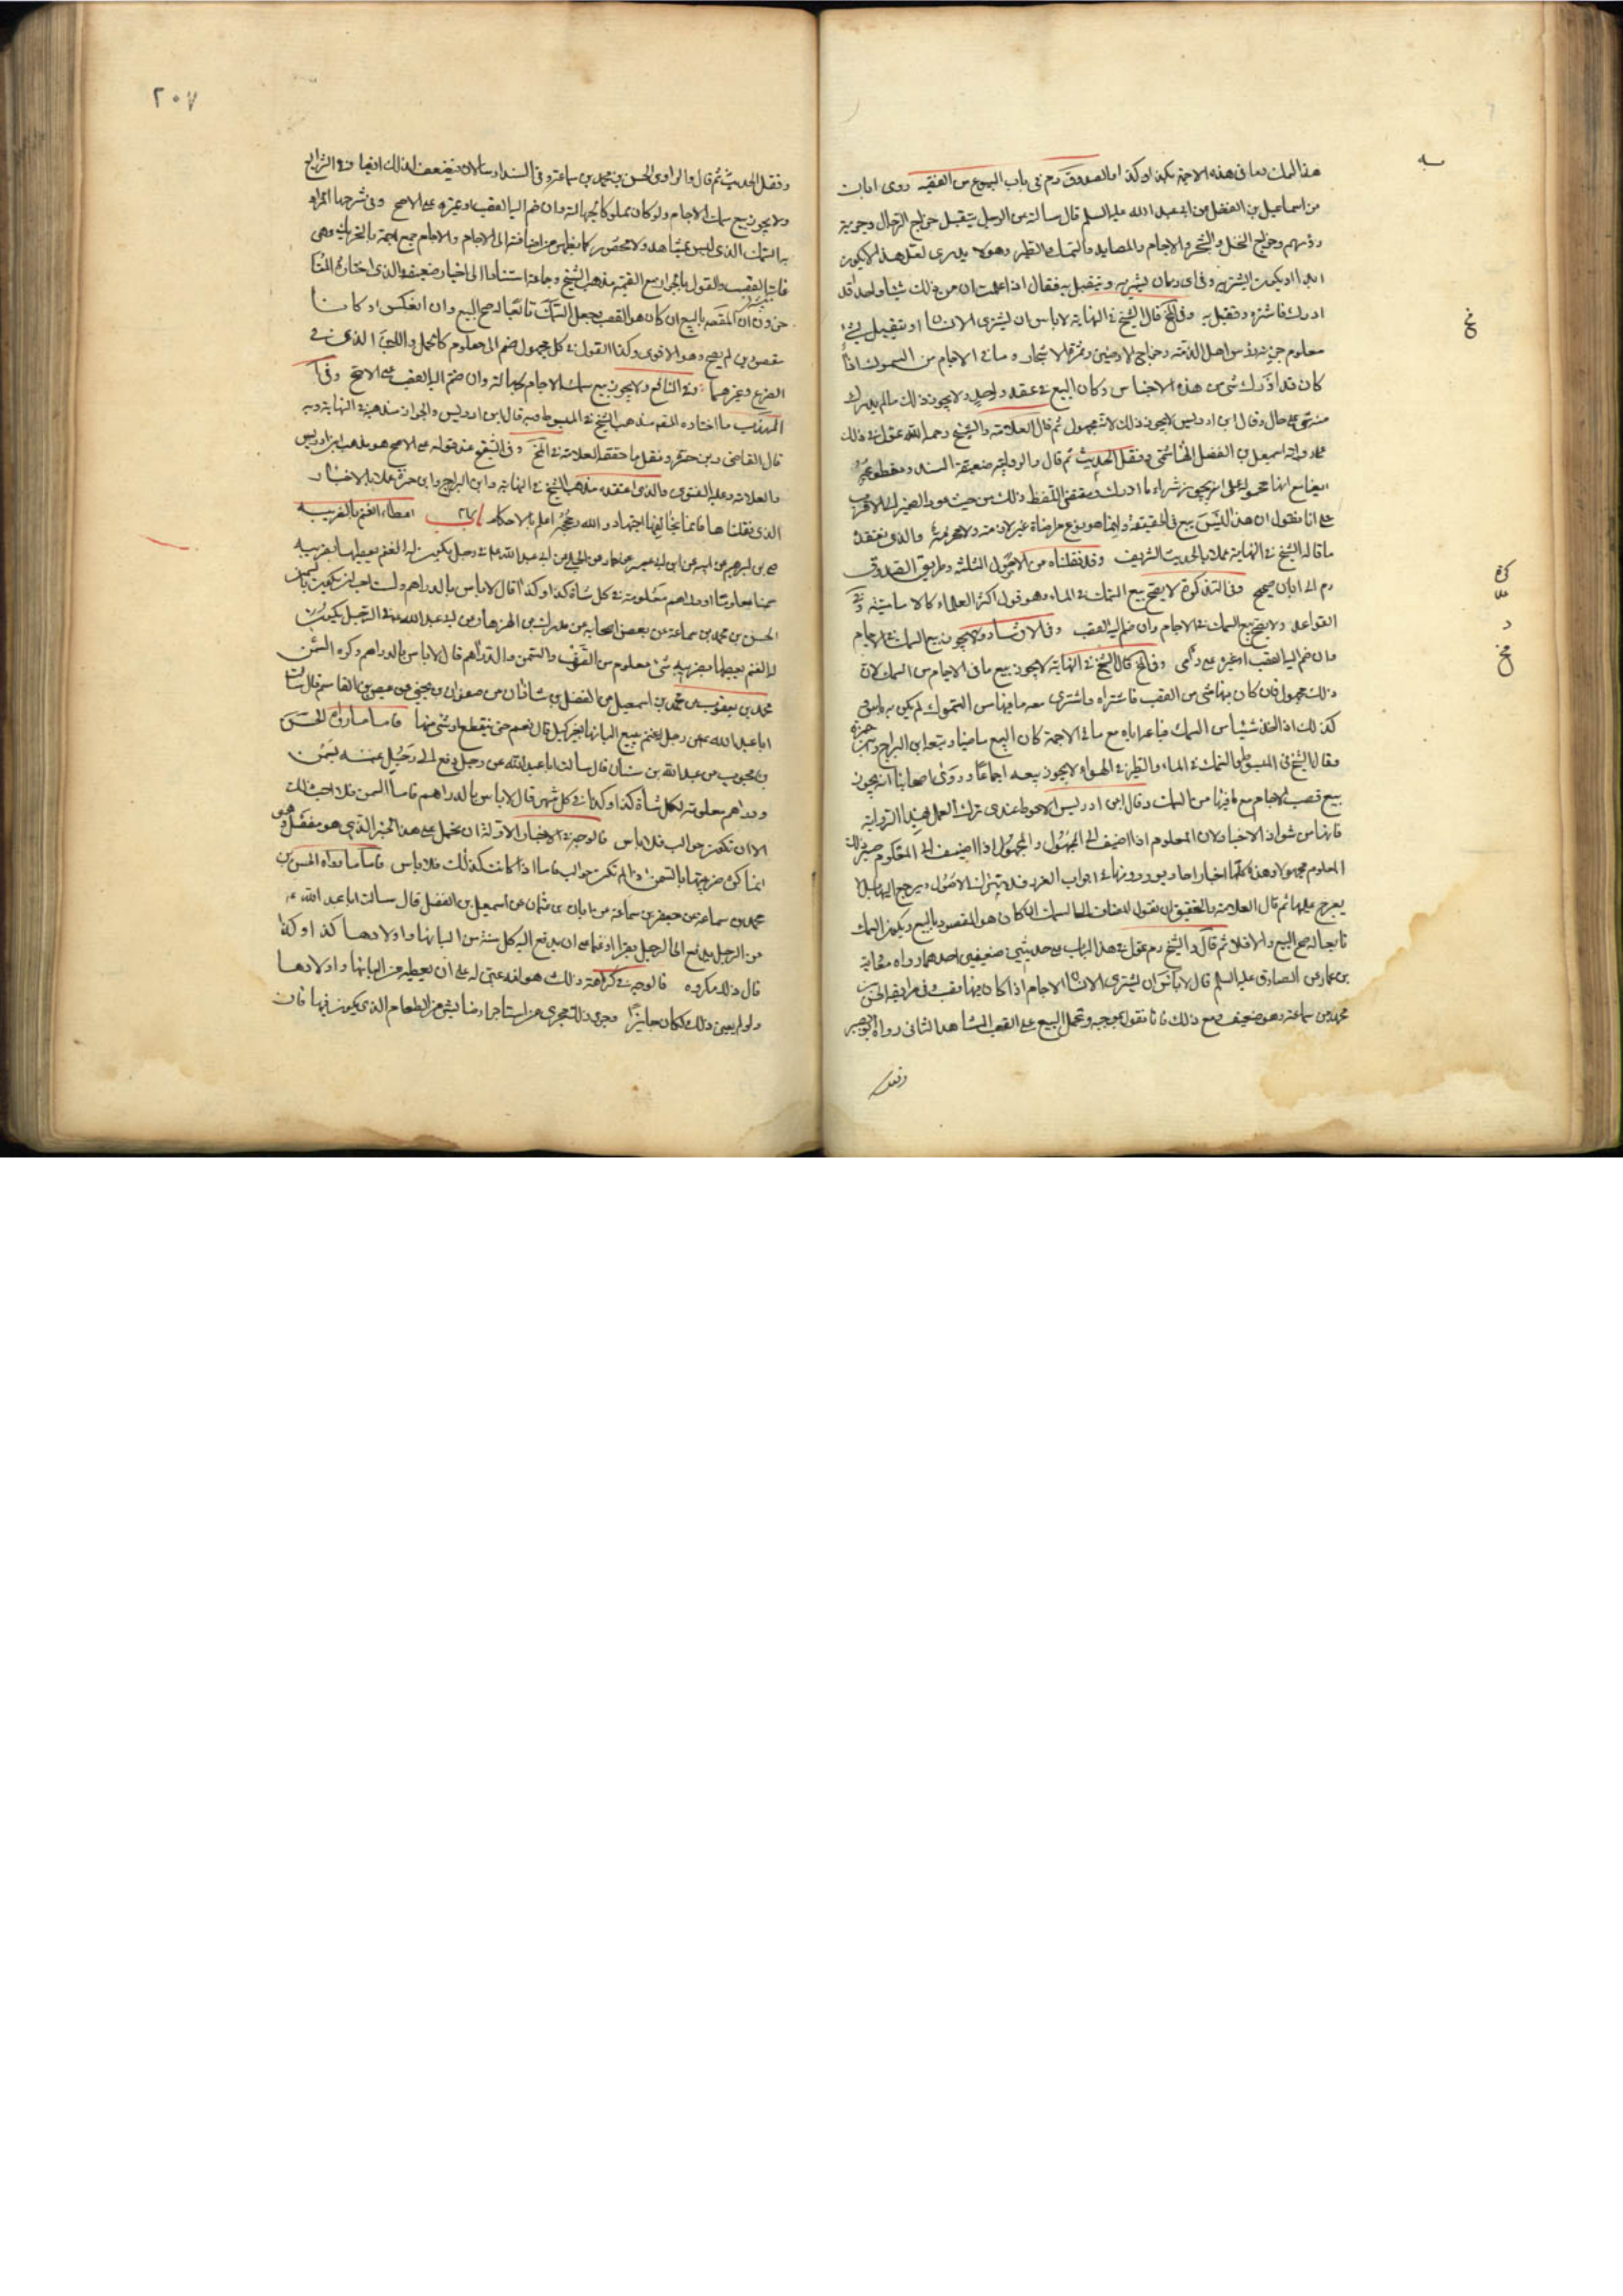 هذا السمك وما فى هذه الاجمة بكذا وكذا اما الصدوق رم فى باب البيوع من الفقيه روى ابان
عن اسماعيل بن الفضل عن ابى عبد الله عليه السلم قال سالته عن الرجل يتقبل خراج الرجال وجزية
رؤسهم وخراج النخل والشجر والاجام والمصايد والسمك والطير وهو لا يدرى لعل هذا لا يكون
ابدا او يكون ايشتريه وفى اى زمان يشتريه ويتقبل به فقال اذا علمت ان من ذلك شيئا واحدا قد
ادرك فاشتره وتقبل به وفى لخ قال الشيخ فى النهاية لا باس ان يشترى الانسان او يتقبل بشئ
معلوم جزية رؤس اهل الذمة وخراج الارضين وثمرة الاشجار وما فى الاجام من السموك اذا
كان قد ادرك شئ من هذه الاجناس وكان البيع فى عقد واحد ولا يجوز ذلك ما لم يدرك
منه شئ على حال وقال ابن ادريس لا يجوز ذلك لانه مجهول ثم قال العلامة والشيخ رحمه الله عول فى ذلك
على رواية اسمعيل بن الفضل الهاشمى ونقل الحديث ثم قال والرواية ضعيفة السند ومقطوعة
ايضا مع انها محمولة على انه يجوز شراء ما ادرك ومقتضى اللفظ ذلك من حيث عود الضمير الى الاقرب
على انا نقول ان هذا ليس بيع فى الحقيقة وانما هو نوع مراضاة غير لازمة ولا محرمة والذى نعتقد
ما قاله الشيخ فى النهاية عملا بالحديث الشريف وقد نقلناه من الاصول الثلثة وطريق الصدوق
رم الى ابان صحيح وفى التذكرة لا يصح بيع السمك فى الماء وهو قول اكثر العلماء كالامامية وفى
القواعد ولا يصح بيع السمك فى الاجام وان ضم اليه القصب وفى الارشاد ولا يجوز بيع السمك فى الاجام
وان ضم اليه القصب او غيره على راى وفى لخ قال الشيخ فى النهاية لا يجوز بيع ما فى الاجام من السمك لان
ذلك مجهول فان كان فيها شئ من القصب فاشتراه واشترى معه ما فيها من السموك لم يكن به باس وفى
كذلك اذا اخذ شيئا من السمك فباعه اياه مع ما فى الاجمة كان البيع ماضيا وتبعه ابن البراج وابن حمزة
وقال الشيخ فى المبسوط السمك فى الماء والطير فى الهواء لا يجوز بيعه اجماعا وروى اصحابنا انه يجوز
بيع قصب الاجام مع ما فيها من السمك وقال ابن ادريس الاحوط عندى ترك العمل بهذه الرواية
فانها من شواذ الاخبار ولان المعلوم اذا اضيف الى المجهول والمجهول اذا اضيف الى المعلوم صير ذلك
المعلوم مجهولا وهذه كلها اخبار احاد يوردونها فى ابواب الغرر فلا تترك الاصول ويرجع اليها بلا
يعرج عليها ثم قال العلامة والتحقيق ان نقول المضاف الى السمك ان كان هو المقصود بالبيع ويكون السمك
تابعا له صح البيع والا فلا ثم قال والشيخ رم عول فى هذا الباب على حديثين ضعيفين احدهما رواه معوية
بن عمار عن الصادق عليه السلم قال لا باس ان يشترى الانسان الاجام اذا كان فيها قصب فى طريقه الحسن
محمد بن سماعة وهو ضعيف ومع ذلك فانا نقول بموجبه ونحمل البيع على القصب المشاهد الثانى رواه ابو بصير
ونقل
٢٠٧
ونقل الحديث ثم قال والراوى الحسن بن محمد بن سماعة وفى السند ارسال ان يضعف لذلك ايضا وفى الشرايع
ولا يجوز بيع سمك الاجام ولو كان مملوكا لجهالته وان ضم اليه القصب او غيره على الاصح وفى شرحها المراد
به السمك الذى ليس مشاهد ولا محصور كما يظهر من اضافته الى الاجام والاجام جمع اجمة بالتحريك وهى
منابت القصب والقول بالجواز مع الضميمة مذهب الشيخ وجماعة استنادا الى اخبار ضعيفة والذى اختاره المتا
خرون ان المقصود بالبيع ان كان هو القصب وجعل السمك تابعا له صح البيع وان انعكس او كانا
مقصودين لم يصح وهو الاقوى وكذا القول فى كل مجهول ضم الى معلوم كالحمل واللبن الذى فى
الضرع وغيرهما وفى النافع ولا يجوز بيع سمك الاجام لجهالته وان ضم اليه القصب على الاصح وفى
المهذب ما اختاره المصنف مذهب الشيخ فى المبسوط وبه قال ابن ادريس والجواز مذهبه فى النهاية وبه
قال القاضى وبن حمزة ونقل ما حققه العلامة فى لخ وفى التنقيح عند قوله على الاصح هو مذهب ابن ادريس
والعلامة وعليه الفتوى والذى اعتقده مذهب الشيخ فى النهاية وابن البراج وابن حمزة عملا بالاخبار
الذى نقلناها فانما يخالفها اجتهاد والله وحججه اعلم بالاحكام باب اعطاء الغنم بالضريبه
على بن ابرهيم عن ابيه عن ابن ابى عمير عن حماد عن الحلبى عن ابى عبد الله عليه فى رجل يكون له الغنم يعطيها بضريبه
سمنا معلوما او دراهم معلومة فى كل شاة كذا وكذا قال لا باس بالدراهم ولست احب ان يكون بالسمن
الحسن بن محمد بن سماعة عن بعض اصحابه عن مدرك بن الهزهاز عن ابى عبد الله فى الرجل يكون
له الغنم يعطيها بضريبه شئ معلوم من الصوف والسمن والدراهم قال لا باس بالدراهم وكره السمن
محمد بن يعقوب عن محمد بن اسمعيل عن الفضل بن شاذان عن صفوان بن يحيى عن عيص بن القاسم قال سالت
ابا عبد الله عن رجل له غنم يبيع البانها بغير كيل قال نعم حتى ينقطع او شئ منها فاما ما رواه الحسن
بن محبوب عن عبد الله بن سنان قال سالت ابا عبد الله عن رجل دفع الى رجل غنمه بسمن
ودراهم معلومة لكل شاة كذا وكذا فى كل شهر قال لا باس بالدراهم فاما السمن فلا احب ذلك
الا ان تكون حوالب فلا باس فالوجه فى الاخبار الاولة ان تحمل على هذا الخبر الذى هو مفصل وهو
انما كره ضريبتها بالسمن اذا لم تكن حوالب فاما اذا كانت كذلك فلا باس فاما ما رواه الحسن بن
محمد بن سماعة عن جعفر بن سماعة عن ابان بن عثمان عن اسمعيل بن الفضل قال سالت ابا عبد الله
عن الرجل يدفع الى الرجل بقرا او غنما على ان يدفع اليه كل سنة من البانها واولادها كذا وكذا
قال ذلك مكروه فالوجه فى كراهة ذلك هو انه على ان يعطيه من البانها واولادها
ولو لم يعين ذلك لكان جايزا وجرى ذلك مجرى من استاجر ارضا بشئ من الطعام الذى يكون فيها فان